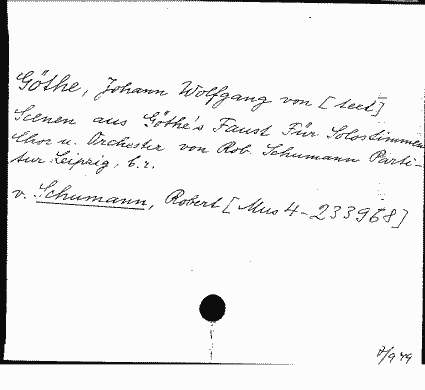 Göthe, Johann Wolfgang von [text]
Scenen aus Göthe's Faust Für Solostimmen
Chor u. Orchester von Rob. Schumann Parti-
tur Leipzig, b.r.
v. Schumann, Robert [Mus 4-233968]